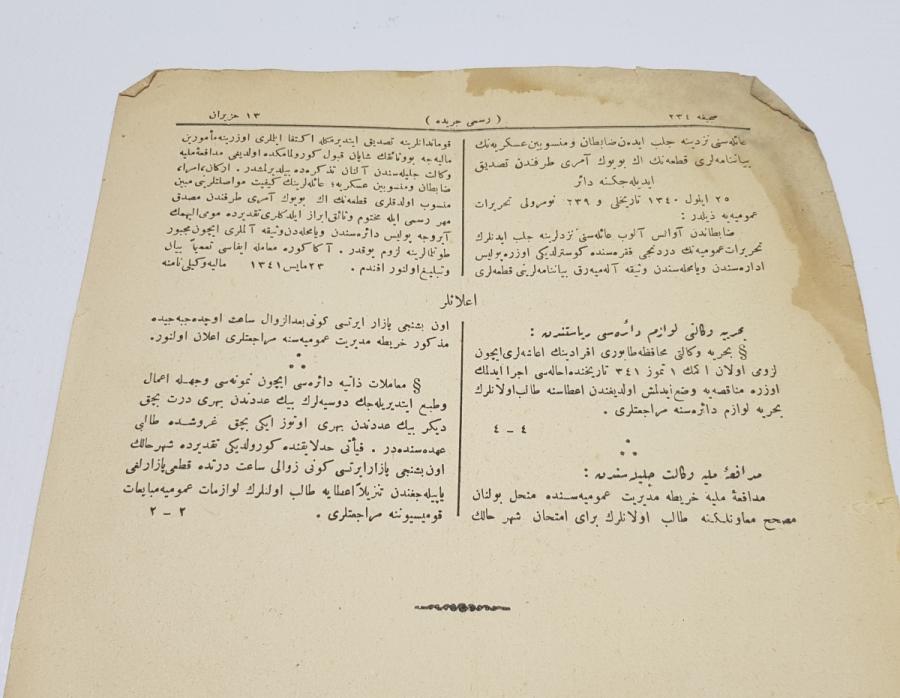 صحیفه ٢٣٤
( رسمی جریده )
١٣ حزیران
عائله‌سنی نزدینه جلب ایده‌ن ضابطان و منسوبین عسکریه‌نك
بیاننامه‌لری قطعه‌نك اك بویوك آمری طرفندن تصدیق
ایدیله‌جکنه دائر
٢٥ ایلول ١٣٤٠ تاریخلی و ٢٣٩ نومرولی تحریرات
عمومیه‌یه ذیلدر :
ضابطاندن آوانس آلوب عائله‌سنی نزدلرینه جلب ایدنلرك
تحریرات عمومیه‌نك دردنجی فقره‌سنده کوسترلدیکی اوزره پولیس
اداره‌سندن ویا محله‌سندن وثیقه آله‌میه‌رق بیاننامه‌لرینی قطعه‌لری
قوماندانلرینه تصدیق ایتدیرمکله اکتفا ایتلری اوزرینه مأمورین
مالیه‌جه بووثائقك شایان قبول کورولمامکده اولدیغی مدافعهٔ ملیه
وکالت جلیله‌سندن آلنان تذکره‌ده بیلدیرلمشدر . ارکان، امرا،
ضابطان و منسوبین عسکریه؛ عائله‌لرینك کیفیت مواصلتلرینی مبین
منسوب اولدقلری قطعه‌نك اك بویوك آمری طرفندن مصدق
مهر رسمی ایله مختوم وثائق ابراز ایلدکلری تقدیرده مومی الیهمك
آیروجه پولیس دائره‌سندن ویا محله‌دن وثیقه آلملری ایچون مجبور
طوتلملرینه لزوم یوقدر . آکا کوره معامله ایفاسی تعمیماً بیان
وتبلیغ اولنور افندم . ٢٣ مایس ١٣٤١ مالیه وکیلی نامنه
اعلانلر
بحریه وکالتی لوازم دائره‌سی ریاستندن :
§ بحریه وکالتی محافظه طابوری افرادینك اعاشه‌لری ایچون
لزومی اولان اکمك ١ تموز ٣٤١ تاریخنده احاله‌سی اجرا ایدلمك
اوزره مناقصه‌یه وضع ایدلمش اولدیغندن اعطاسنه طالب اولانلرك
بحریه لوازم دائره‌سنه مراجعتلری .
٤ — ٤
مدافعهٔ ملیه وکالت جلیله‌سندن :
مدافعهٔ ملیه خریطه مدیریت عمومیه‌سنده منحل بولنان
مصحح معاونلکنه طالب اولانلرك برای امتحان شهر حالك
اون بشنجی پازار ایرتسی کونی بعدالزوال ساعت اوچده جبه‌جیده
مذکور خریطه مدیریت عمومیه‌سنه مراجعتلری اعلان اولنور.
§ معاملات ذاتیه دائره‌سی ایچون نمونه‌سی وجهله اعمال
وطبع ایتدیریله‌جك دوسیه‌لرك بیك عددندن بهری درت بچق
دیکر بیك عددندن بهری اوتوز ایکی بچق غروشده طالبی
عهده‌سنده‌در . فیأتی حد لایقنده کورولدیکی تقدیرده شهر حالك
اون بشنجی پازار ایرتسی کونی زوالی ساعت درتده قطعی پازارلغی
یاپیله‌جغندن تنزیلاً اعطایه طالب اولنلرك لوازمات عمومیه مبایعات
قومیسیوننه مراجعتلری .
٢ — ٢